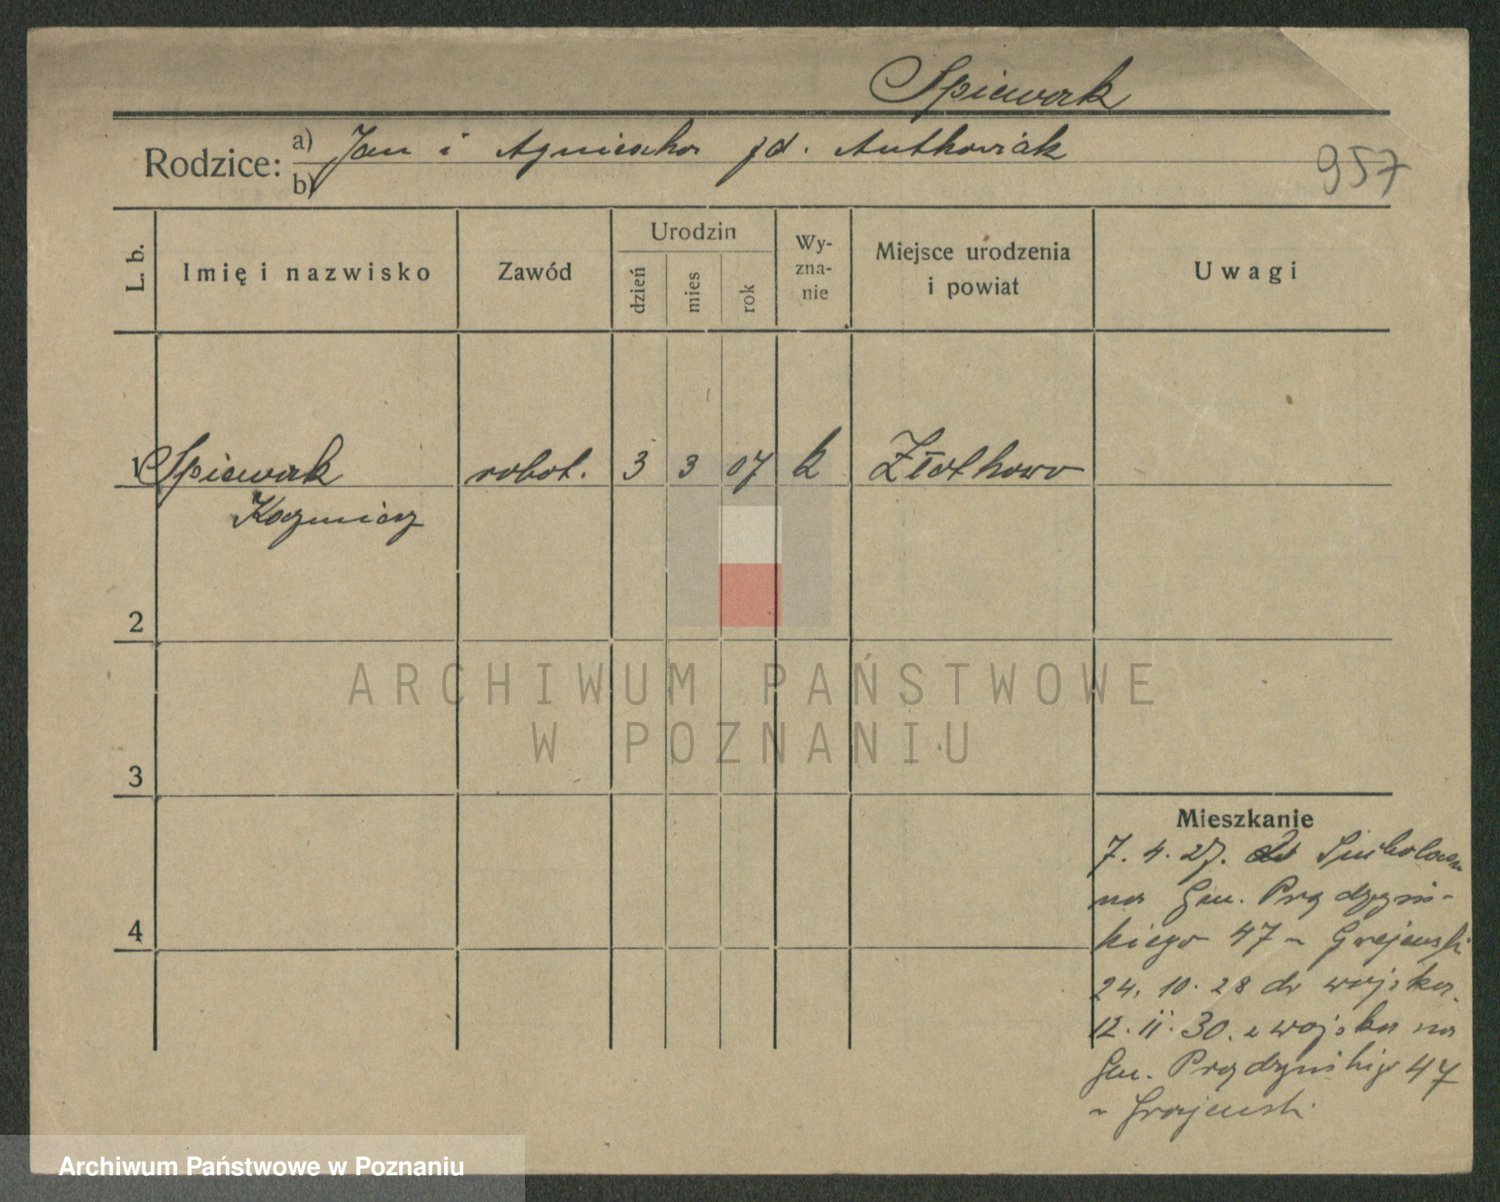 Spiewak
Rodzice: a) Jan i Agnieszka zd. Antkowiak
b)
957
L. b.
Imię i nazwisko
Zawód
Urodzin
dzień
mies
rok
Wy-
zna-
nie
Miejsce urodzenia
i powiat
Uwagi
1 Spiewak robot. 3 3 07 k Złotkowo
Kazmierz
2
ARCHIWUM PAŃSTWOWE
W POZNANIU
3
4
Mieszkanie
7. 4. 27.
na Gen. Prądzyńs-
kiego 47 - Grajewski
24. 10. 28 do wojska.
12. 11. 30. z wojska na
Gen. Prądzyńskiego 47
- Grajewski
Archiwum Państwowe w Poznaniu